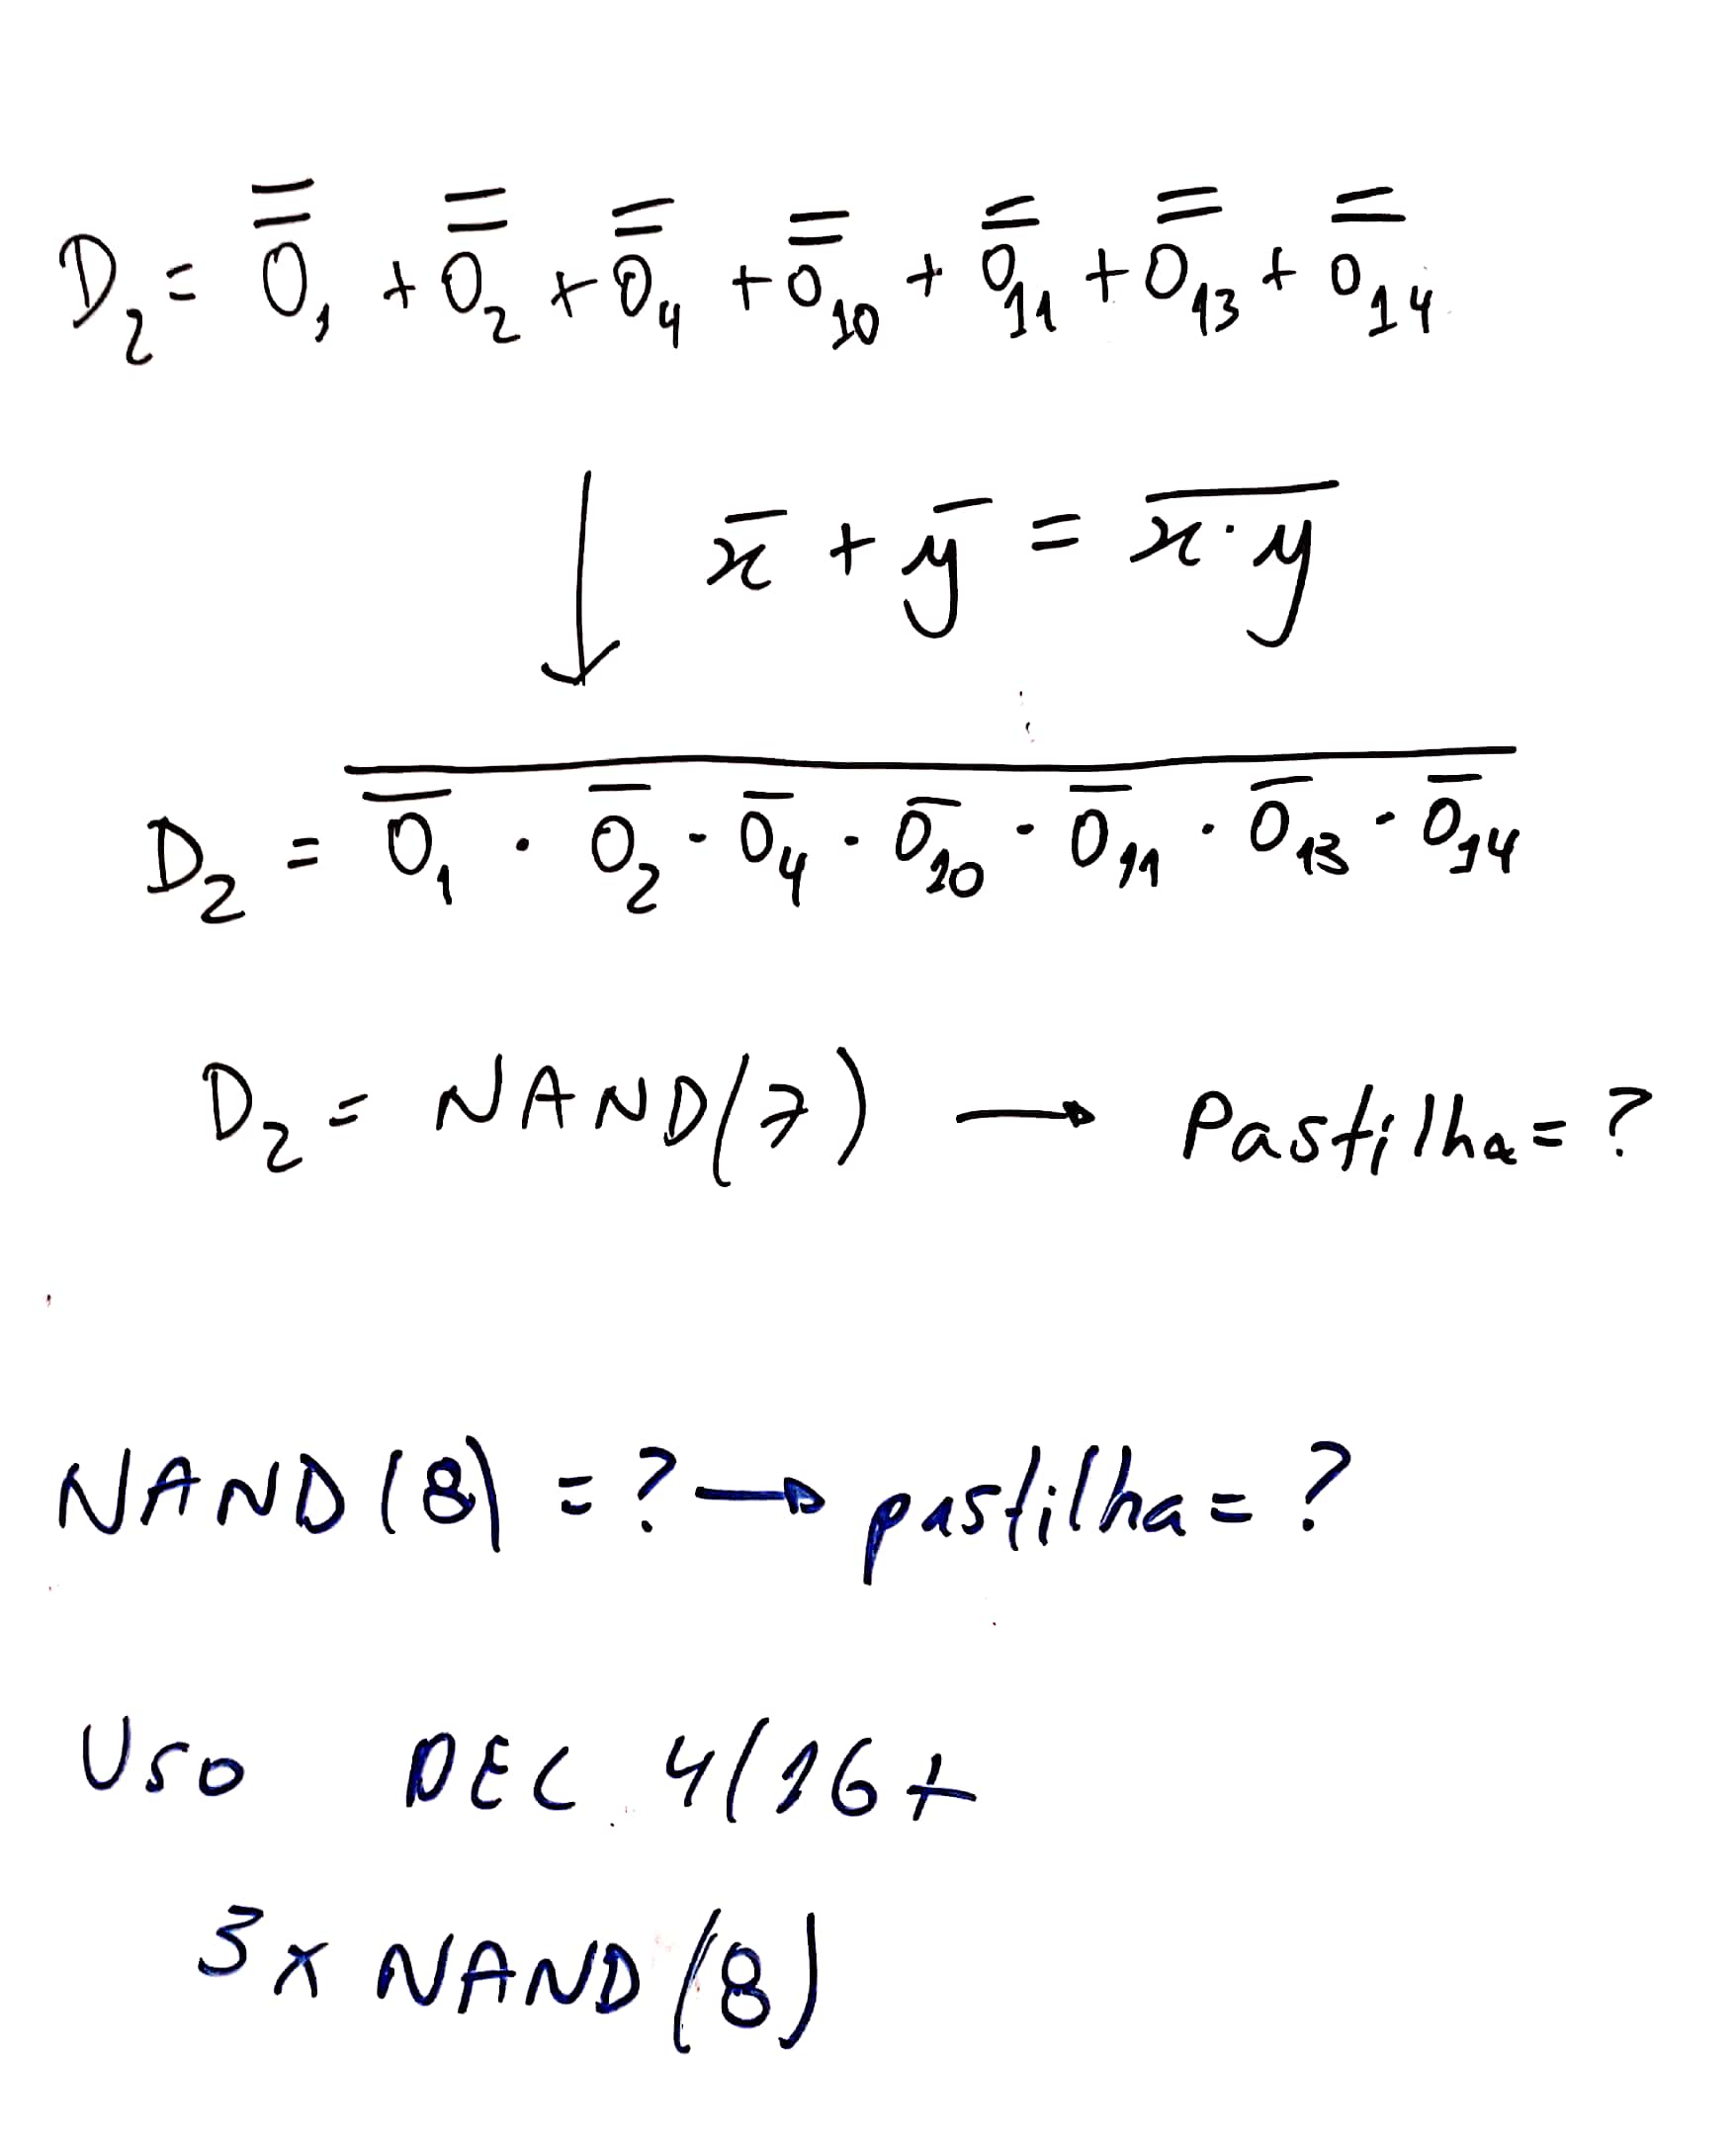 D₂ = O̿₁ + O̿₂ + O̿₄ + O̿₁₀ + O̿₁₁ + O̿₁₃ + O̿₁₄
↓ x̅ + y̅ = \overline{x·y}
D₂ = \overline{O̅₁ · O̅₂ · O̅₄ · O̅₁₀ · O̅₁₁ · O̅₁₃ · O̅₁₄}
D₂ = NAND(7) → Pastilha = ?
NAND(8) = ? → pastilha = ?
Uso DEC 4/16 +
3 x NAND(8)